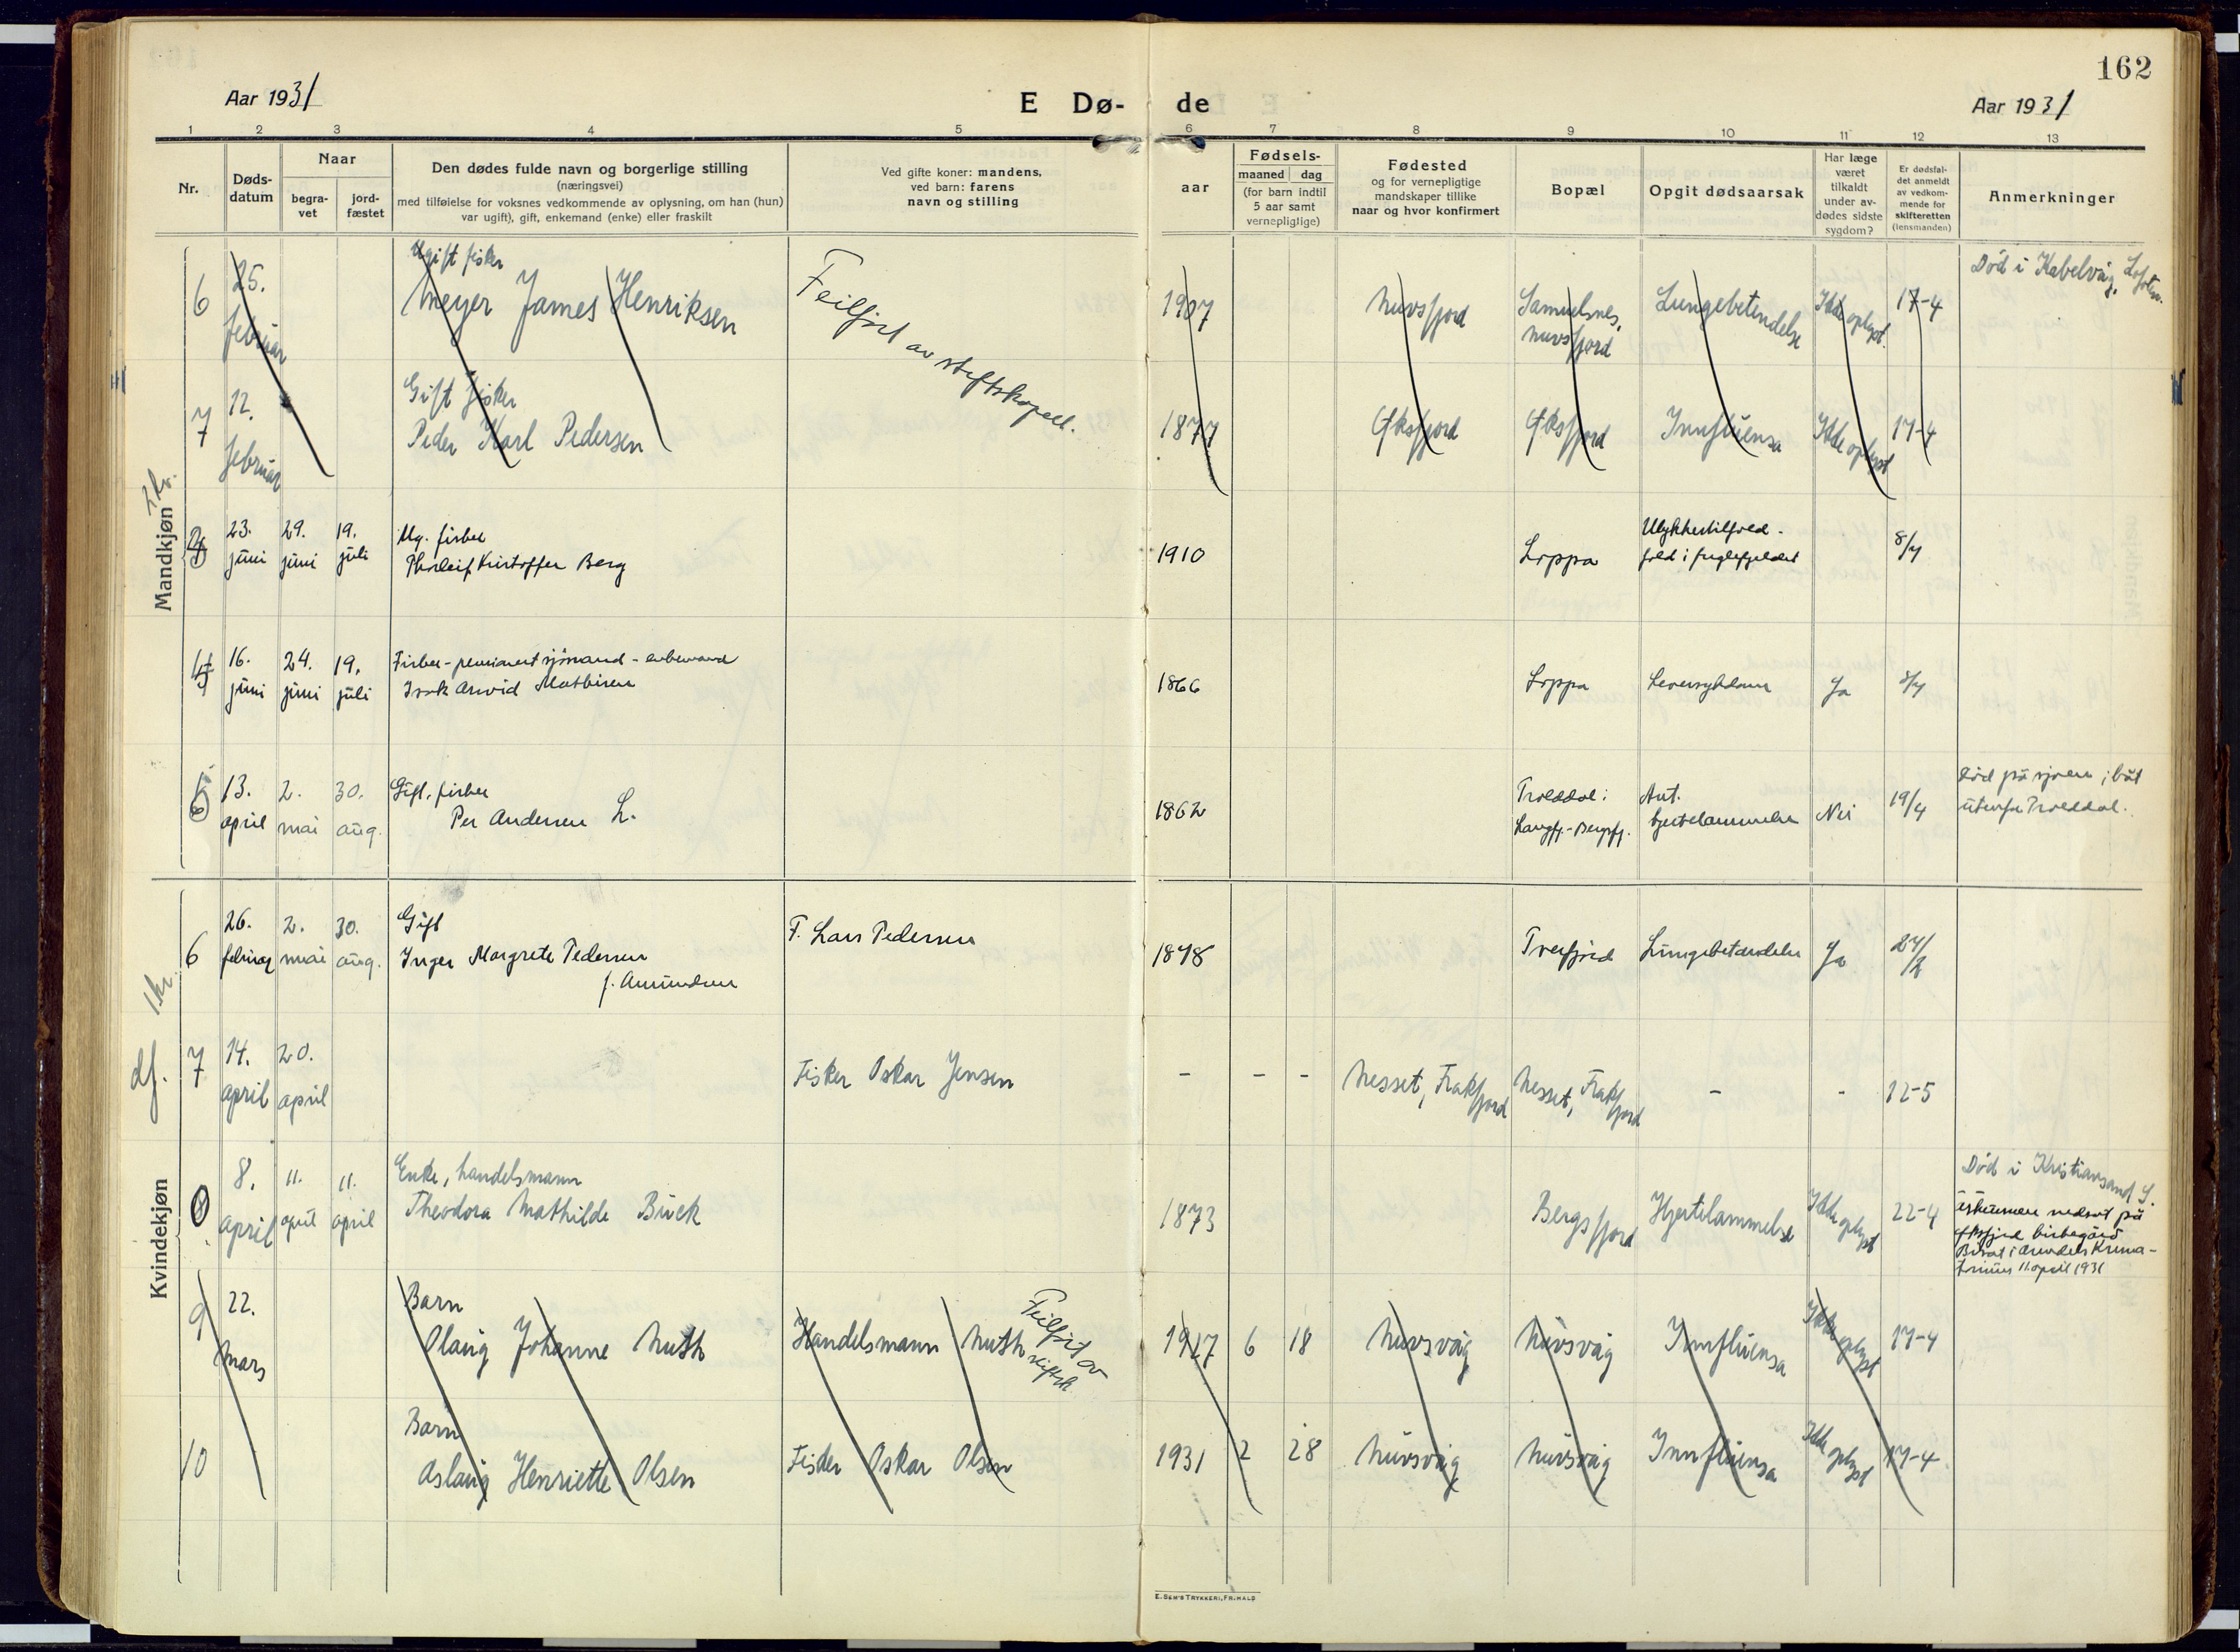 162
Aar 1931
E Dø-
de
Aar 1931
1 2 3 4 5 6 7 8 9 10 11 12 13
Nr.
Døds-
datum
Naar
begra-
vet
jord-
fæstet
Den dødes fulde navn og borgerlige stilling
(næringsvei)
med tilføielse for voksnes vedkommende av oplysning, om han (hun)
var ugift), gift, enkemand (enke) eller fraskilt
Ved gifte koner: mandens,
ved barn: farens
navn og stilling
aar
Fødsels-
maaned dag
(for barn indtil
5 aar samt
vernepligtige)
Fødested
og for vernepligtige
mandskaper tillike
naar og hvor konfirmert
Bopæl
Opgit dødsaarsak
Har læge
været
tilkaldt
under av-
dødes sidste
sygdom?
Er dødsfal-
det anmeldt
av vedkom-
mende for
skifteretten
(lensmanden)
Anmerkninger
Mandkjøn
6
25.
februar
Ugift fisker
Meyer James Henriksen
Feilført av stiftskapell.
1907
Nuvsfjord
Samuelsnes,
Nuvsfjord
Lungebetendelse
Ikke oplyst.
17-4
Død i Kabelvåg, Lofoten.
7
12.
februar
Gift fisker
Peder Karl Pedersen
1877
Øksfjord
Øksfjord
Innfluensa
Ikke oplyst
17-4
23.
juni
29.
juni
19.
juli
Ug. fisker
Thorleif Kristoffer Berg
1910
Loppa
Ulykkestilfeld.
fald i fuglefjeldet
8/7
16.
juni
24.
juni
19.
juli
Fisker - pensionert sjömand - enkemand
Isak Arvid Mathisen
1866
Loppa
Leversykdom
Ja
8/7
13.
april
2.
mai
30.
aug.
Gift. fisker
Per Andersen L.
1862
Trolddal i
Langfj.-Bergsfj.
Ant.
hjertelammelse
Nei
19/4
Död på sjøen i båt
utenfor Trolddal.
Kvindekjøn
6
26.
februar
2.
mai
30.
aug.
Gift
Inger Margrete Pedersen
f. Amundsen
F. Lars Pedersen
1878
Tverfjord
Lungebetændelse
Ja
df.
7
14.
april
20.
april
Fisker Oskar Jensen
- - -
Nesset, Frakfjord
Nesset, Frakfjord
-
-
12-5
8
8.
april
11.
april
11.
april
Enke, handelsmann
Theodora Mathilde Buck
1873
Bergsfjord
Hjertelammelse
Ikke oplyst
22-4
Død i Kristiansand S.
askeurnen nedsat på
Øksfjord kirkegård
Bisat i Arendals Krema-
torium 11. april 1931
9
22.
mars
Barn
Olaug Johanne Muth
Handelsmann Muth
Feilført av
stiftsk.
1927
6
18
Nuvsvåg
Nuvsvåg
Innfluensa
Ikke oplyst
17-4
10
Barn
Aslaug Henriette Olsen
Fisker Oskar Olsen
1931
2
28
Nuvsvåg
Nuvsvåg
Innfluensa
Ikke oplyst
17-4
E. SEM'S TRYKKERI, FR.HALD